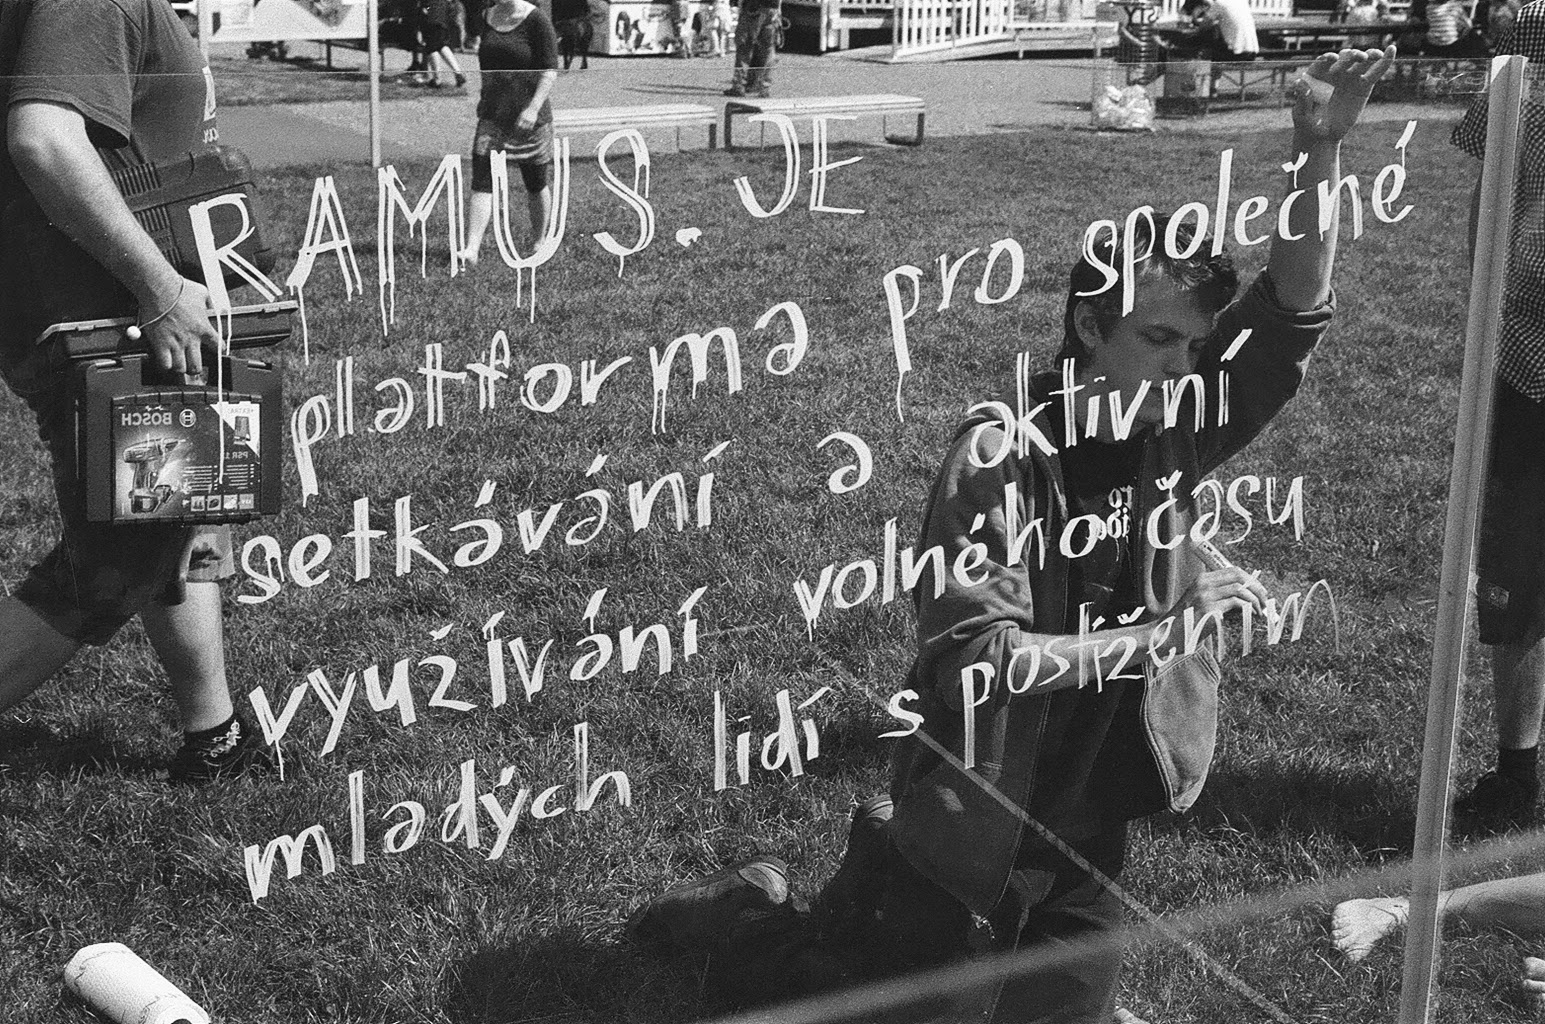 RAMUS. JE
platforma pro společné
setkávání a aktivní
využívání volného času
mladých lidí s postižením
BOSCH
PSR